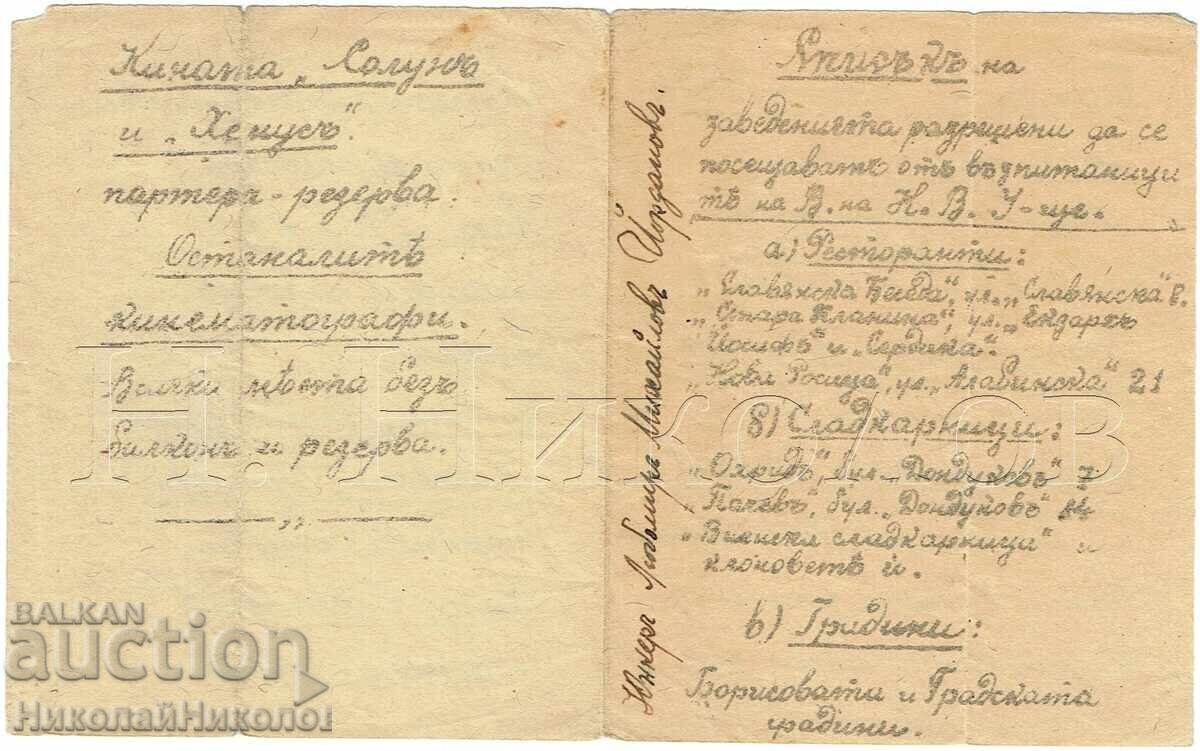 Кината „Солунъ
и „Венусъ“.
партеръ - резерва.
Останалитѣ
кинематографи.
Всички мѣста безъ
балконъ и резерва.
Юнкеръ Любомиръ Михайловъ Йордановъ.
Списъкъ на
заведенията разрешени да се
посещаватъ отъ възпитаници
тѣ на В. на Н. В. У-ще.
а) Ресторанти:
„Славянска Беседа“, ул. „Славянска“ 8.
„Стара Планина“, ул. „Екзархъ
Йосифъ“ и „Сердика“.
„Росица“, ул. „Алабинска“ 21
б) Сладкарници:
„Охридъ“, бул. „Дондуковъ“ 7
„Пачевъ“, бул. „Дондуковъ“
„Виенска сладкарница“ и
клоноветѣ ѝ.
в) Градини:
Борисовата и Градската
градини.
Н. Николов
BALKAN
auction
НиколайНиколов